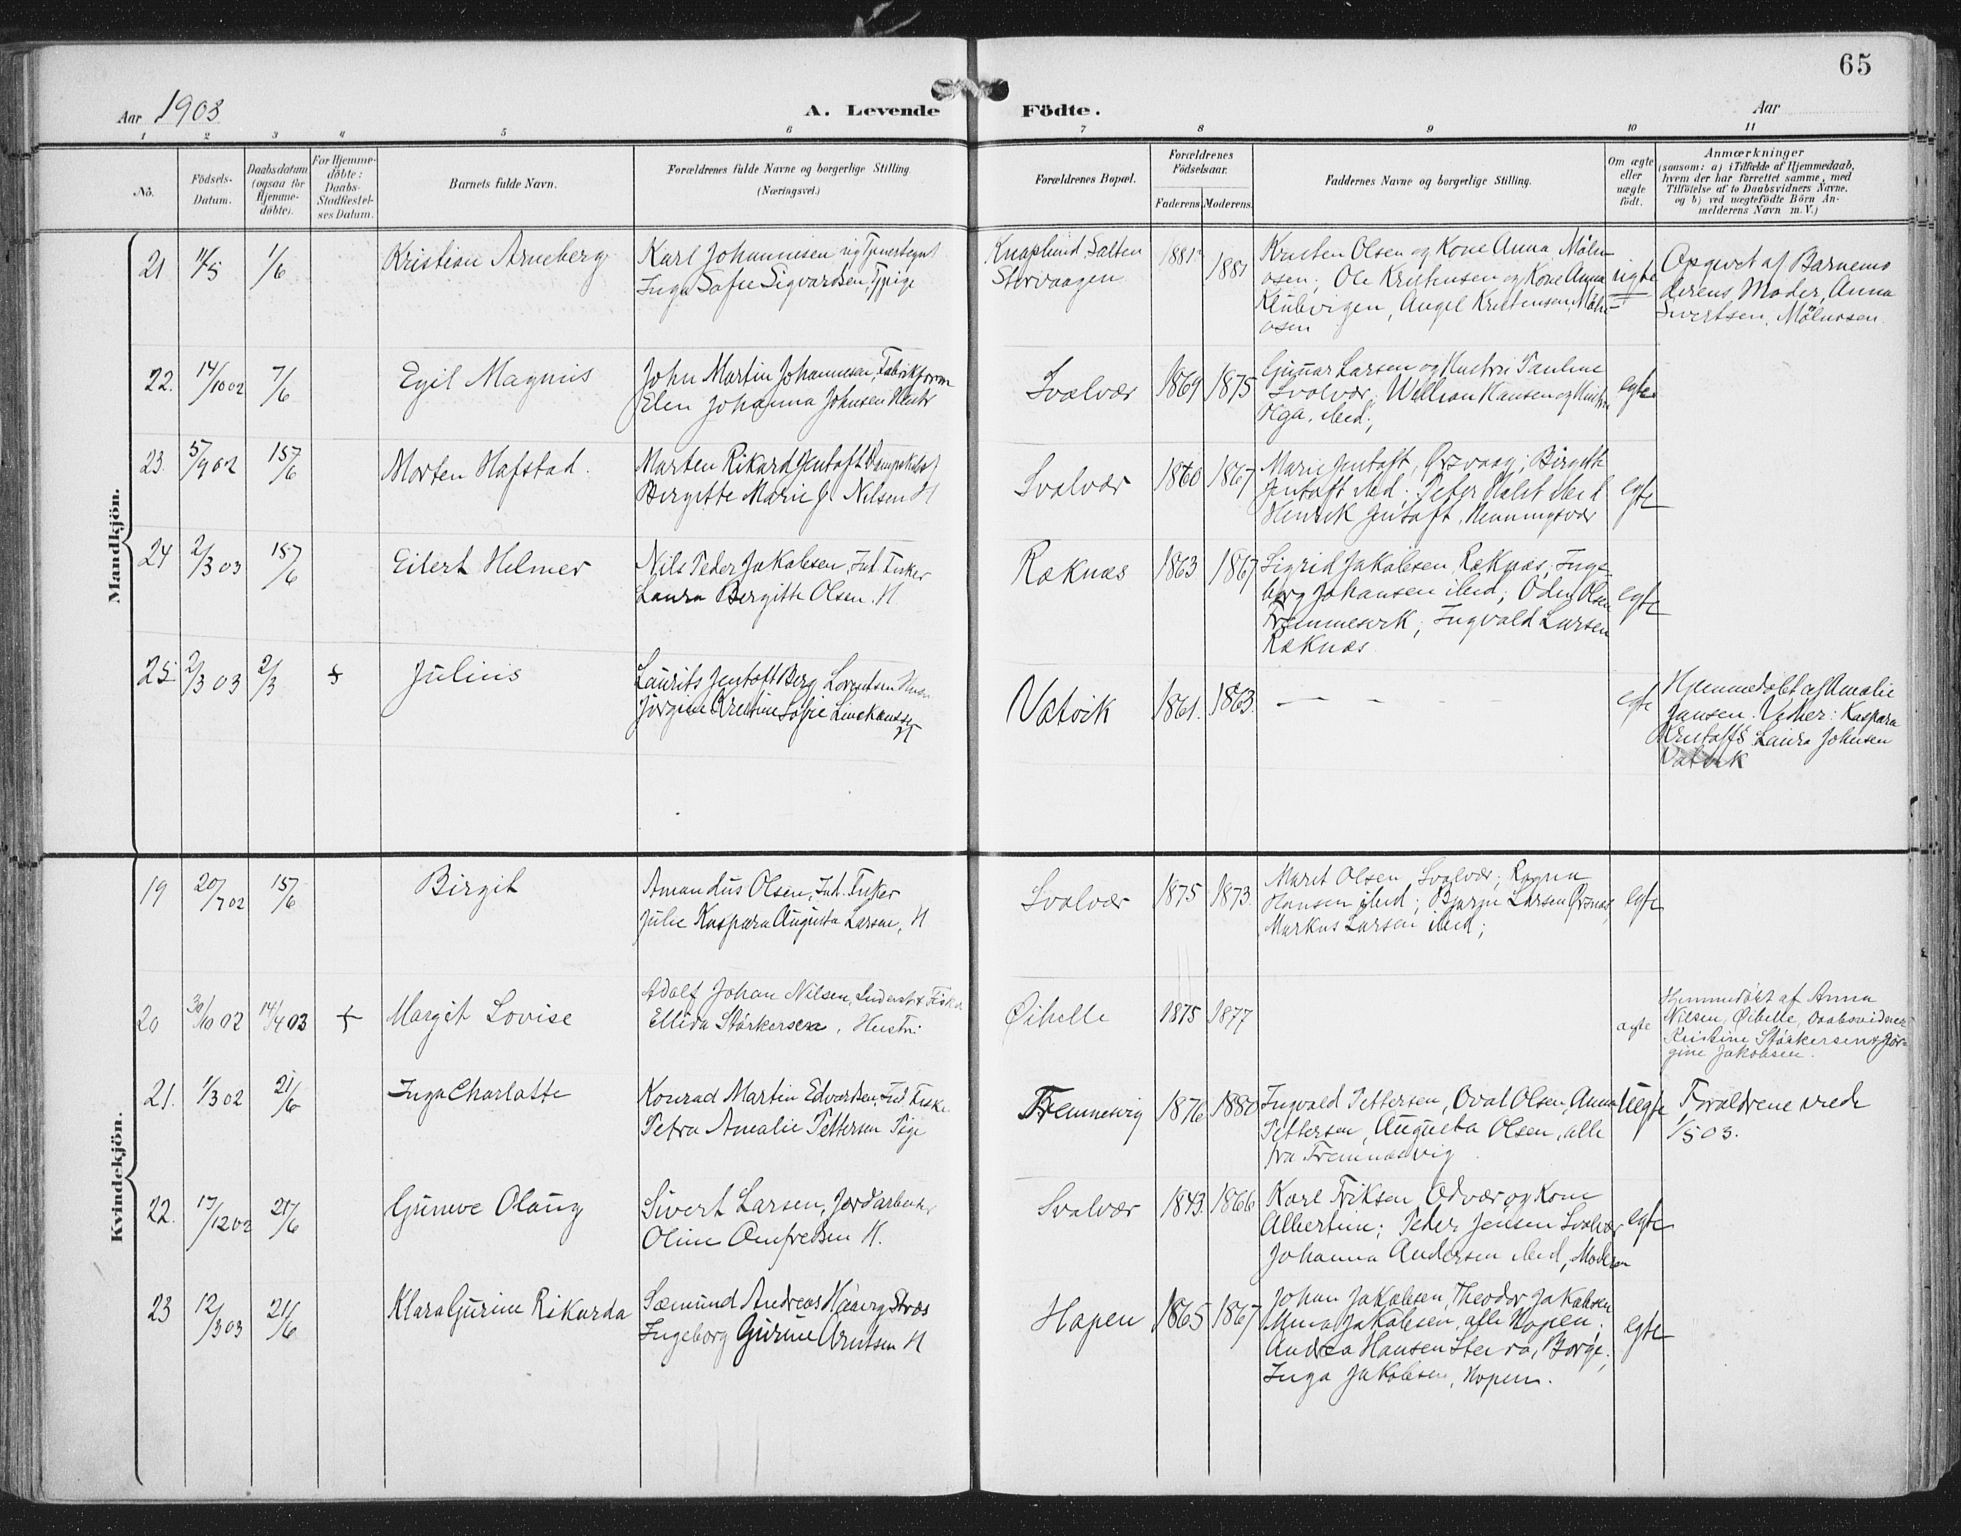 65
Aar 1903
A. Levende Födte.
Aar
1 2 3 4 5 6 7 8 9 10 11
No.
Födsels-
Datum.
Daabsdatum
(ogsaa för
Hjemme-
döbte).
For Hjemme-
döbte:
Daabs-
Stadfæstel-
ses Datum.
Barnets fulde Navn.
Forældrenes fulde Navne og borgerlige Stilling
(Næringsvei.)
Forældrenes Bopæl.
Forældrenes
Födselsaar.
Faderens Moderens.
Faddernes Navne og borgerlige Stilling.
Om ægte
eller
uægte
födt.
Anmærkninger
(saasom: a) i Tilfælde af Hjemmedaab,
hvem der har forrettet samme, med
Tilföielse af to Daabsvidners Navne.
og b) ved uægtefödte Börn An-
melderens Navn m. V.)
Mandkjön.
21 11/5 1/6 Kristian Arneberg
Karl Johannesen ug Tjenestegut
Inga Sofie Sigvardsen, Tpige
Knaplund Salten
Storvaagen
1881 1881
Kristen Olsen og Kone Anna Möln-
osen; Ole Kristensen og Kone Anna
Klubvigen, Angel Kristensen, Möln-
osen
uegte
Opgivet af Barnemo
derens Moder, Anna
Sivertsen, Mölnosen.
22. 14/10 02 7/6 Egil Magnus
John Martin Johannesen, Fabrikform
Elen Johanna Johnsen Hustr
Svolvær 1869 1875
Gunnar Larsen og Hustru Pauline
Svolvær; William Hansen og Hustru
Olga, ibid;
egte
23. 5/9 02 15/6 Morten Hafstad.
Morten Rikard Jentoft Dampskibsf
Birgitte Marie f. Nilsen H
Svolvær 1860 1867
Marie Jentoft, Örsvaag; Birgith
Jentoft ibid; Peter Holst ibid
Henrik Jentoft, Henningsvær
egte
24 2/3 03 15/6 Eilert Helmer
Nils Peder Jakobsen, Ind. Fisker
Laura Bergitte Olsen. H
Ræknæs 1863 1867
Sigrid Jakobsen Ræknæs; Inge
borg Johansen ibid; Odin Olsen
Fremmesvik; Ingvald Larsen
Ræknæs
egte
25 2/3 03 2/3 + Julius
Laurits Jentoft Berg Lorentsen
Jörgine Kristine Sofie
H
Vatvik 1861. 1863.
— — - - -
egte
Hjemmedöbt af Amalie
Jansen. Vidner: Kaspara
Laura Johnsen
Vatvik
Kvindekjön.
19 20/7 02 15/6 Birgit
Amandus Olsen, Ind. Fisker
Julie Kaspara Augusta Larsen, H
Svolvær 1875 1873.
Marit Olsen, Svolvær; Ragna
Hansen ibid; Bjarne Larsen Örsnæs,
Markus Larsen ibid;
egte
20 30/10 02 14/4 03 + Margit Lovise
Adolf Johan Nilsen, Inderst & Fisker
Ellida Störkersen, Hustru
Öihelle 1875 1877
ægte
Hjemmedöbt af Anna
Nilsen, Öihelle, Daabsvidner
Kristine Störkersen & Jör-
gine Jakobsen.
21. 1/3 02 21/6 Inga Charlotte
Konrad Martin Edvardsen, Ind Fisk.
Petra Amalie Pettersen Pige
Fremnesvig 1876 1880
Ingvald Pettersen, Oval Olsen, Anna
Pettersen, Augusta Olsen, alle
fra Fremnæsvig
Uegte
Forældrene viede
1/5 03.
22. 17/12 02 21/6 Gunvve Olaug
Sivert Larsen, Jordarbeider
Oline Amfredsen H.
Svolvær 1843. 1866
Karl Eriksen, Odvær og Kone
Albertine; Peder Jensen Svolvær
Johanna Andersen ibid, Moderen
egte
23 12/3 03 21/6 Klara Gurine Rikarda
Sæmund Andreas
Ingeborg Gurine Arntsen H
Hopen 1865 1867
Johan Jakobsen, Theodor Jakobsen
Anna Jakobsen, alle Hopen;
Andrea Hansen Steira, Borge;
Inga Jakobsen, Hopen.
egte